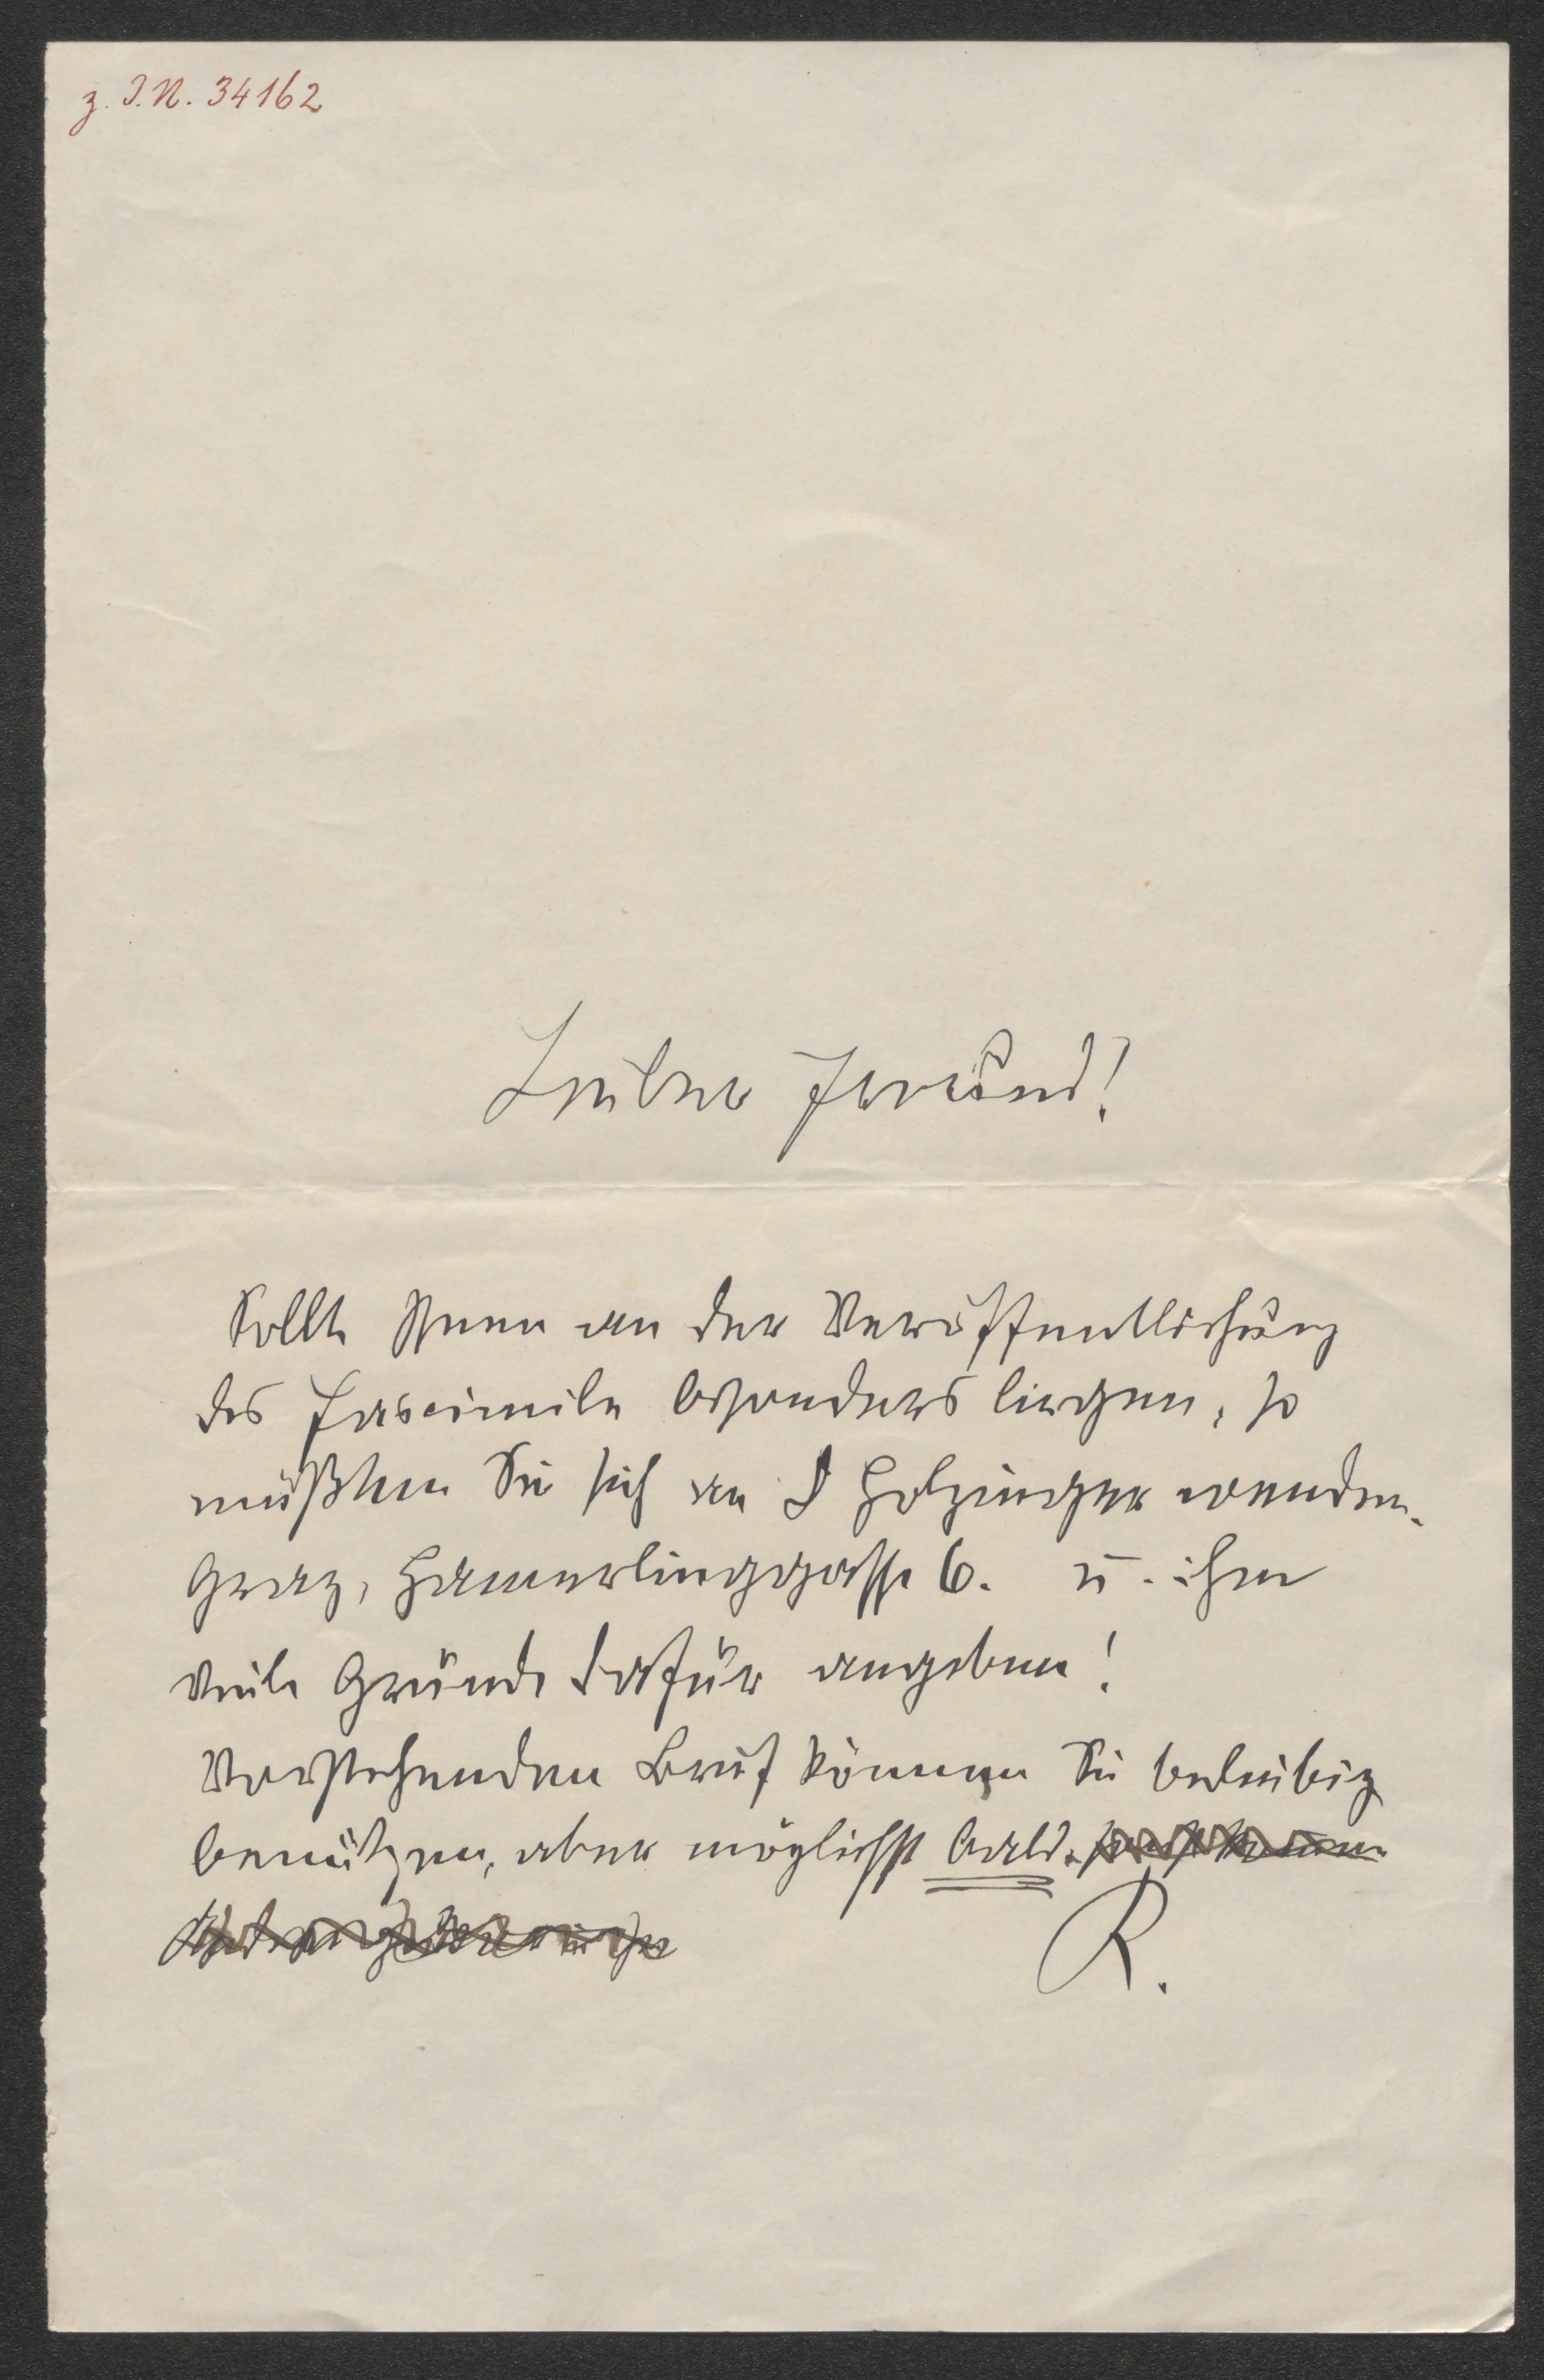 z. I.N. 34162
Lieber Freund!
Sollte Ihnen an der Veröffentlichung
des Facsimile besonders liegen, so
müßten Sie sich an Holzinger wenden.
Graz, Hamerlinggasse 6. u. ihm
viele Gründe dafür angeben!
Vorstehenden Brief können Sie beliebig
benützen, aber möglichst bald.
R.